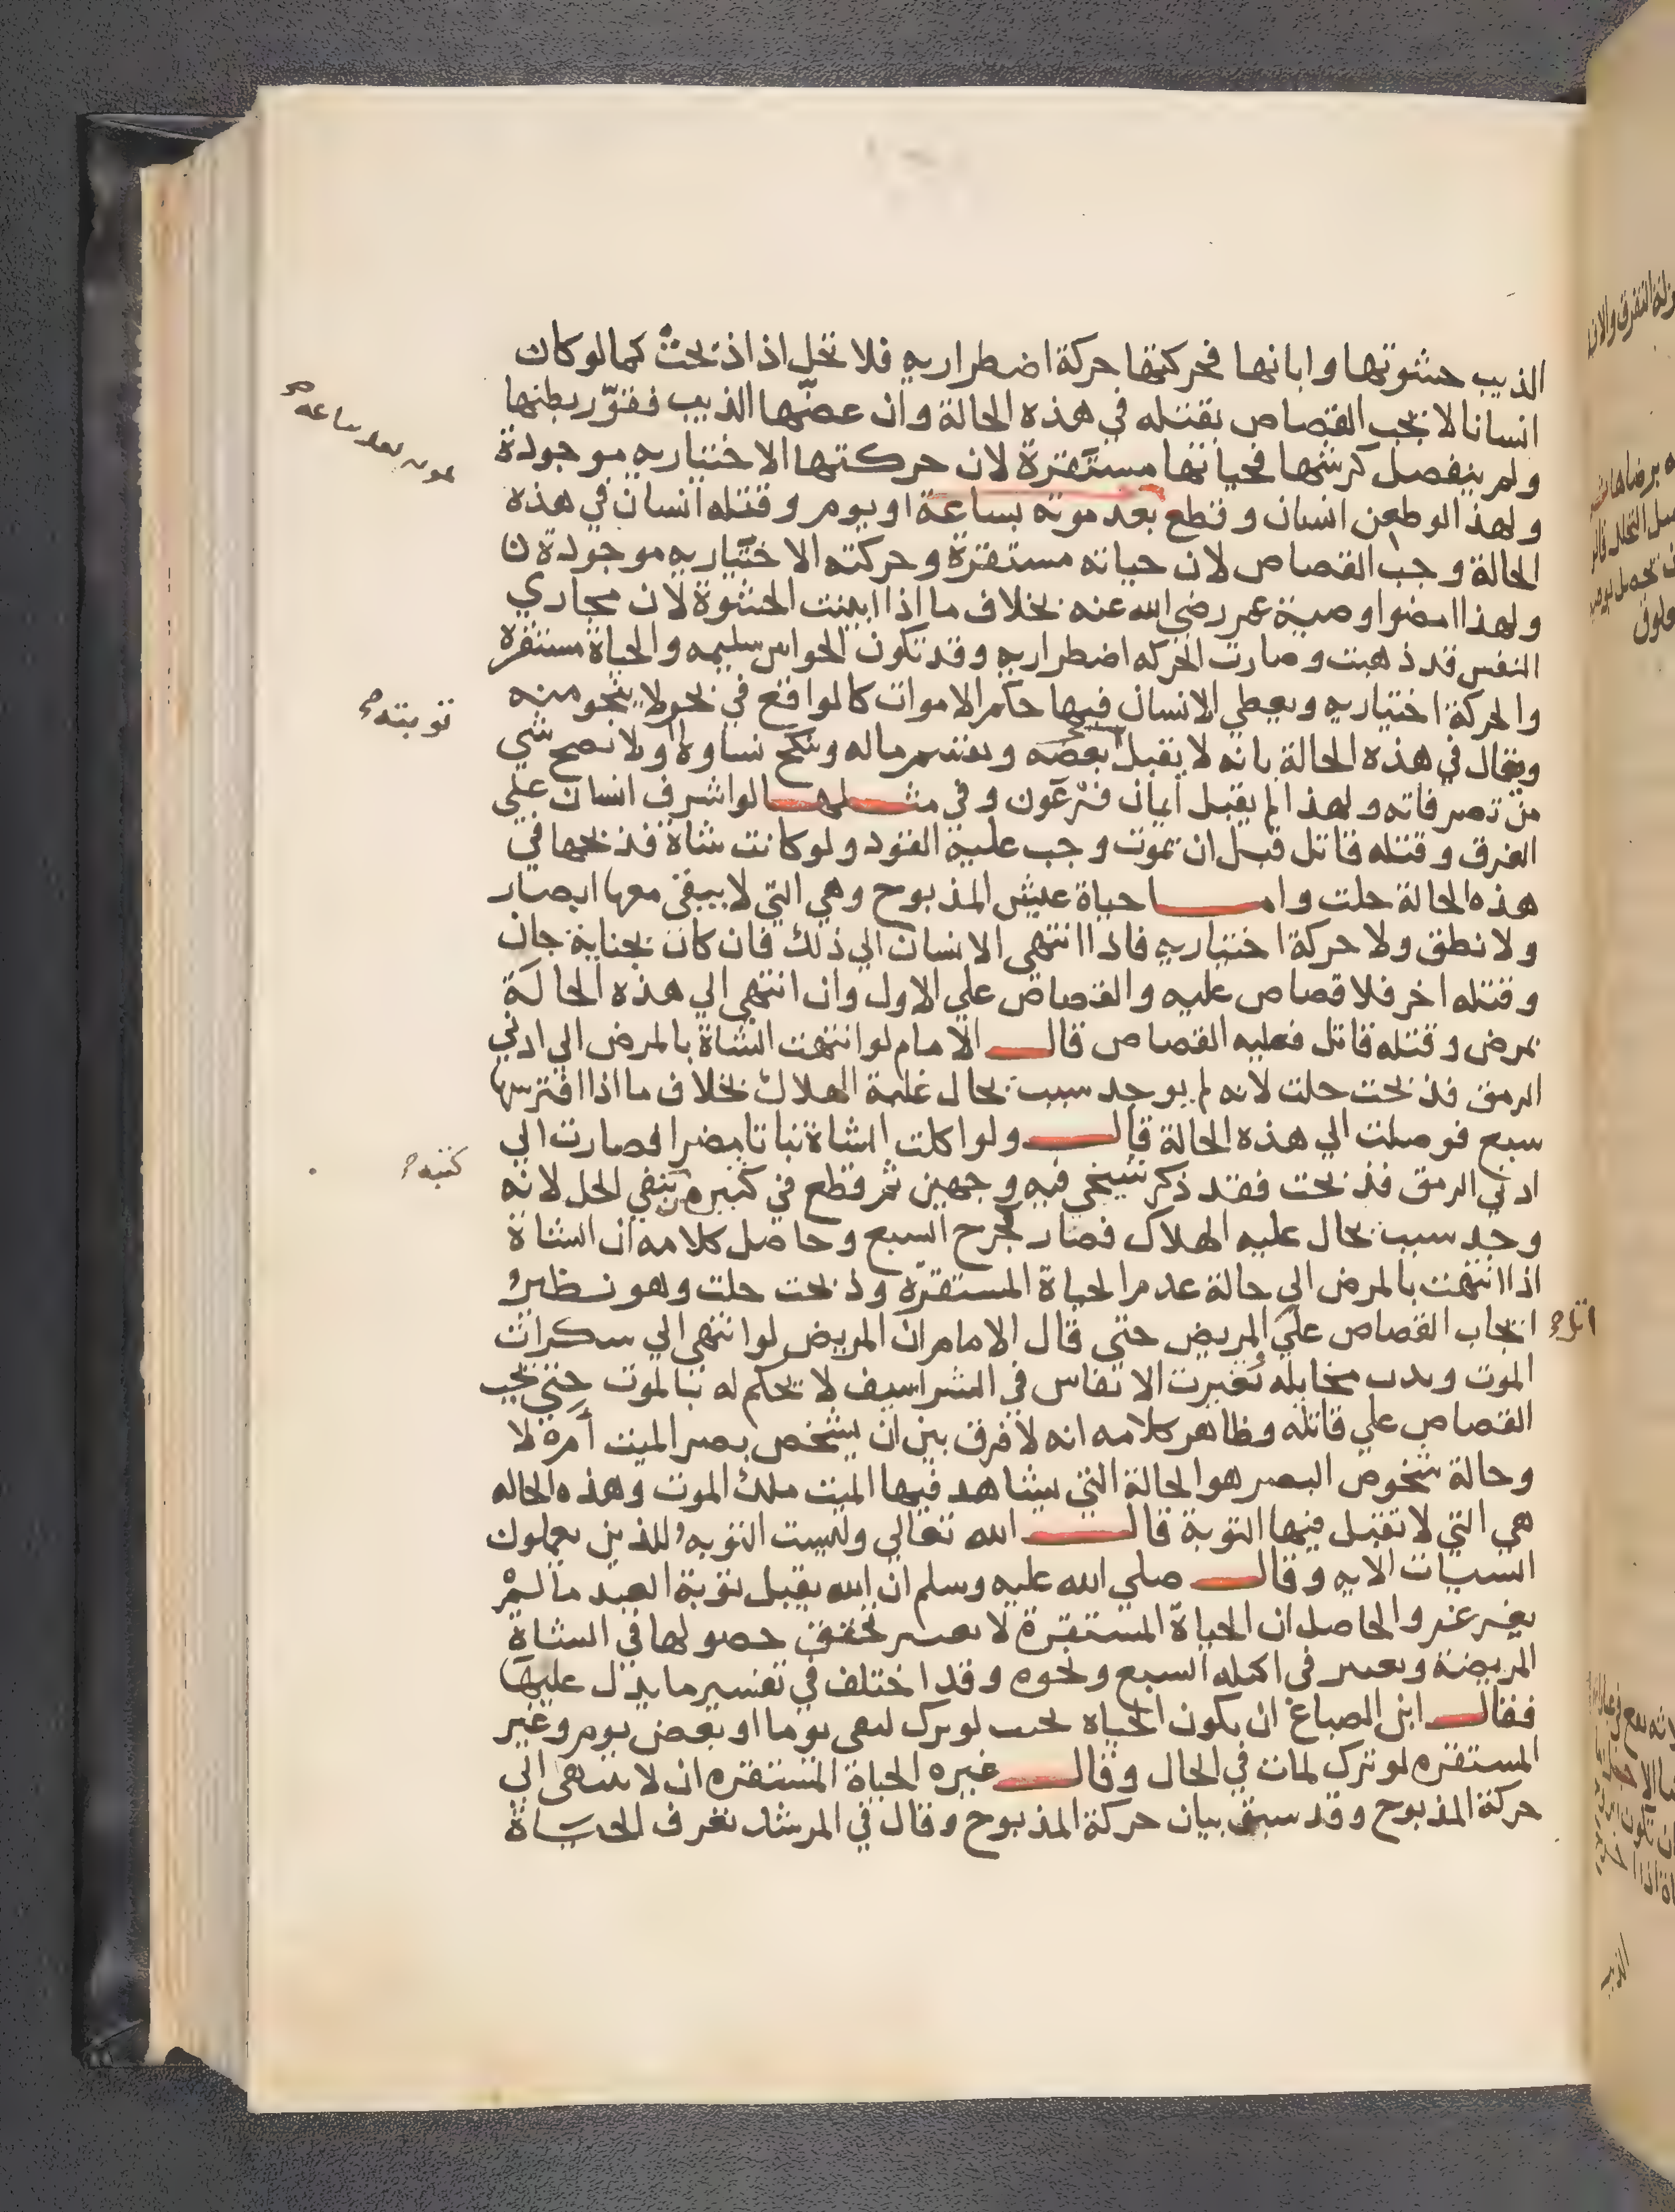 الذيب حشوتها وابانها فحركتها حركة اضطراريه فلا تحل اذا ذبحت كما لو كان
انسانا لا يجب القصاص بقتله في هذه الحالة وان عضها الذيب فقوّر بطنها
ولم ينفصل كرشها فحياتها مستقرة لان حركتها الاختياريه موجودة
ولهذا لو طعن انسان وقطع بعد موته بساعة او يوم وقتله انسان في هذه
موته بعد ساعه
الحالة وجب القصاص لان حياته مستقرة وحركته الاختياريه موجودة
ولهذا امضوا وصية عمر رضي الله عنه بخلاف ما اذا ابينت الحشوة لان مجاري
النفس قد ذهبت وصارت الحركه اضطراريه وقد تكون الحواس سليمه والحياة مستقره
والحركة اختياريه ويعطي الانسان فيها حكم الاموات كما لو اقع في بحر لا ينجو منه
ويقال في هذه الحالة بانه لا يقبل بعضه ويقسم ماله وينكح نساوه ولا يصح شي
توبته
من تصرفاته ولهذا لم يقبل ايمان فرعون وفي مثلها لو اشرف انسان علي
الغرق وقتله قاتل قبل ان يموت وجب عليه القود ولو كانت شاة فذبحها في
هذه الحالة حلت واما حياة عيش المذبوح وهي التي لا يبقى معها ابصار
ولا نطق ولا حركة اختياريه فاذا انتهى الانسان الي ذلك فان كان بجناية جان
وقتله اخر فلا قصاص عليه والقصاص علي الاول وان انتهى الي هذه الحالة
بمرض وقتله قاتل فعليه القصاص قال الامام لو انتهت الشاة بالمرض الي ادني
الرمق فذبحت حلت لانه لم يوجد سبب يحال عليه الهلاك بخلاف ما اذا افترسها
سبع فوصلت الي هذه الحالة قال ولو اكلت الشاة نباتا مضرا فصارت الي
ادني الرمق فذبحت فقد ذكر شيخي فيه وجهين ثم قطع في كبيره بنفي الحل لانه
كتبه
وجد سبب يحال عليه الهلاك فصار كجرح السبع وحاصل كلامه ان الشاة
اذا انتهت بالمرض الي حالة عدم الحياة المستقرة وذبحت حلت وهو نظير
ايجاب القصاص علي المريض حتى قال الامام ان المريض لو انتهى الي سكرات
الموت وبدت مخايله وتغيرت الانفاس في الشراسيف لا يحكم له بالموت حتى يجب
القصاص علي قاتله وظاهر كلامه انه لا فرق بين ان يشخص بصر الميت ام لا
وحالة شخوص البصر هو الحالة التي يشاهد فيها الميت ملك الموت وهذه الحاله
هي التي لا تقبل فيها التوبة قال الله تعالي وليست التوبه للذين يعملون
السيات الايه وقال صلي الله عليه وسلم ان الله يقبل توبة العبد ما لم
يغرغر والحاصل ان الحياة المستقرة لا يعسر تحقق حصولها في الشاة
المريضة ويعسر في اكيله السبع ونحوه وقد اختلف في تفسير ما يدل عليها
فقال ابن الصباغ ان يكون الحياه بحيث لو ترك لبقي يوما او بعض يوم وغير
المستقره لو ترك لمات في الحال وقال غيره الحياة المستقره ان لا ينتهى الي
حركة المذبوح وقد سبق بيان حركة المذبوح وقال في المرشد تعرف الحياة